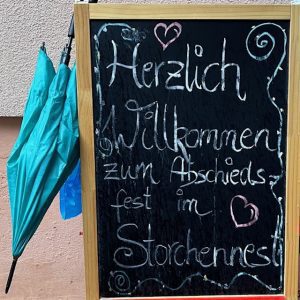 Herzlich
Willkommen
zum Abschieds-
fest im
Storchennest